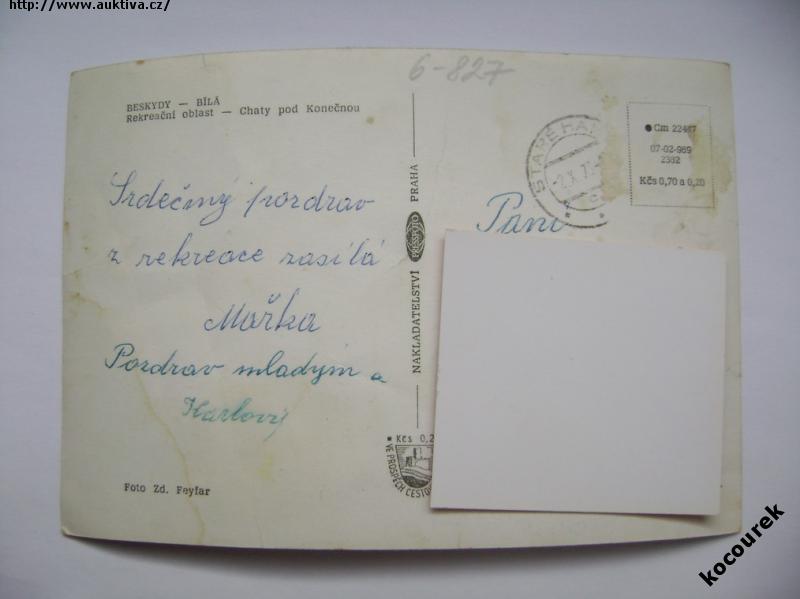 http://www.auktiva.cz/
6-827
BESKYDY — BÍLÁ
Rekreační oblast — Chaty pod Konečnou
Srdečný pozdrav
z rekreace zasílá
Mařka
Pozdrav mladým a
Karlovi
Foto Zd. Feyfar
NAKLADATELSTVÍ PRESSFOTO PRAHA
Kčs 0,2
VE PROSPĚCH CESTO
STARÉ HA
-2.X.7
Cm 22487
07-02-969
2382
Kčs 0,70 a 0,20
Paní
kocourek